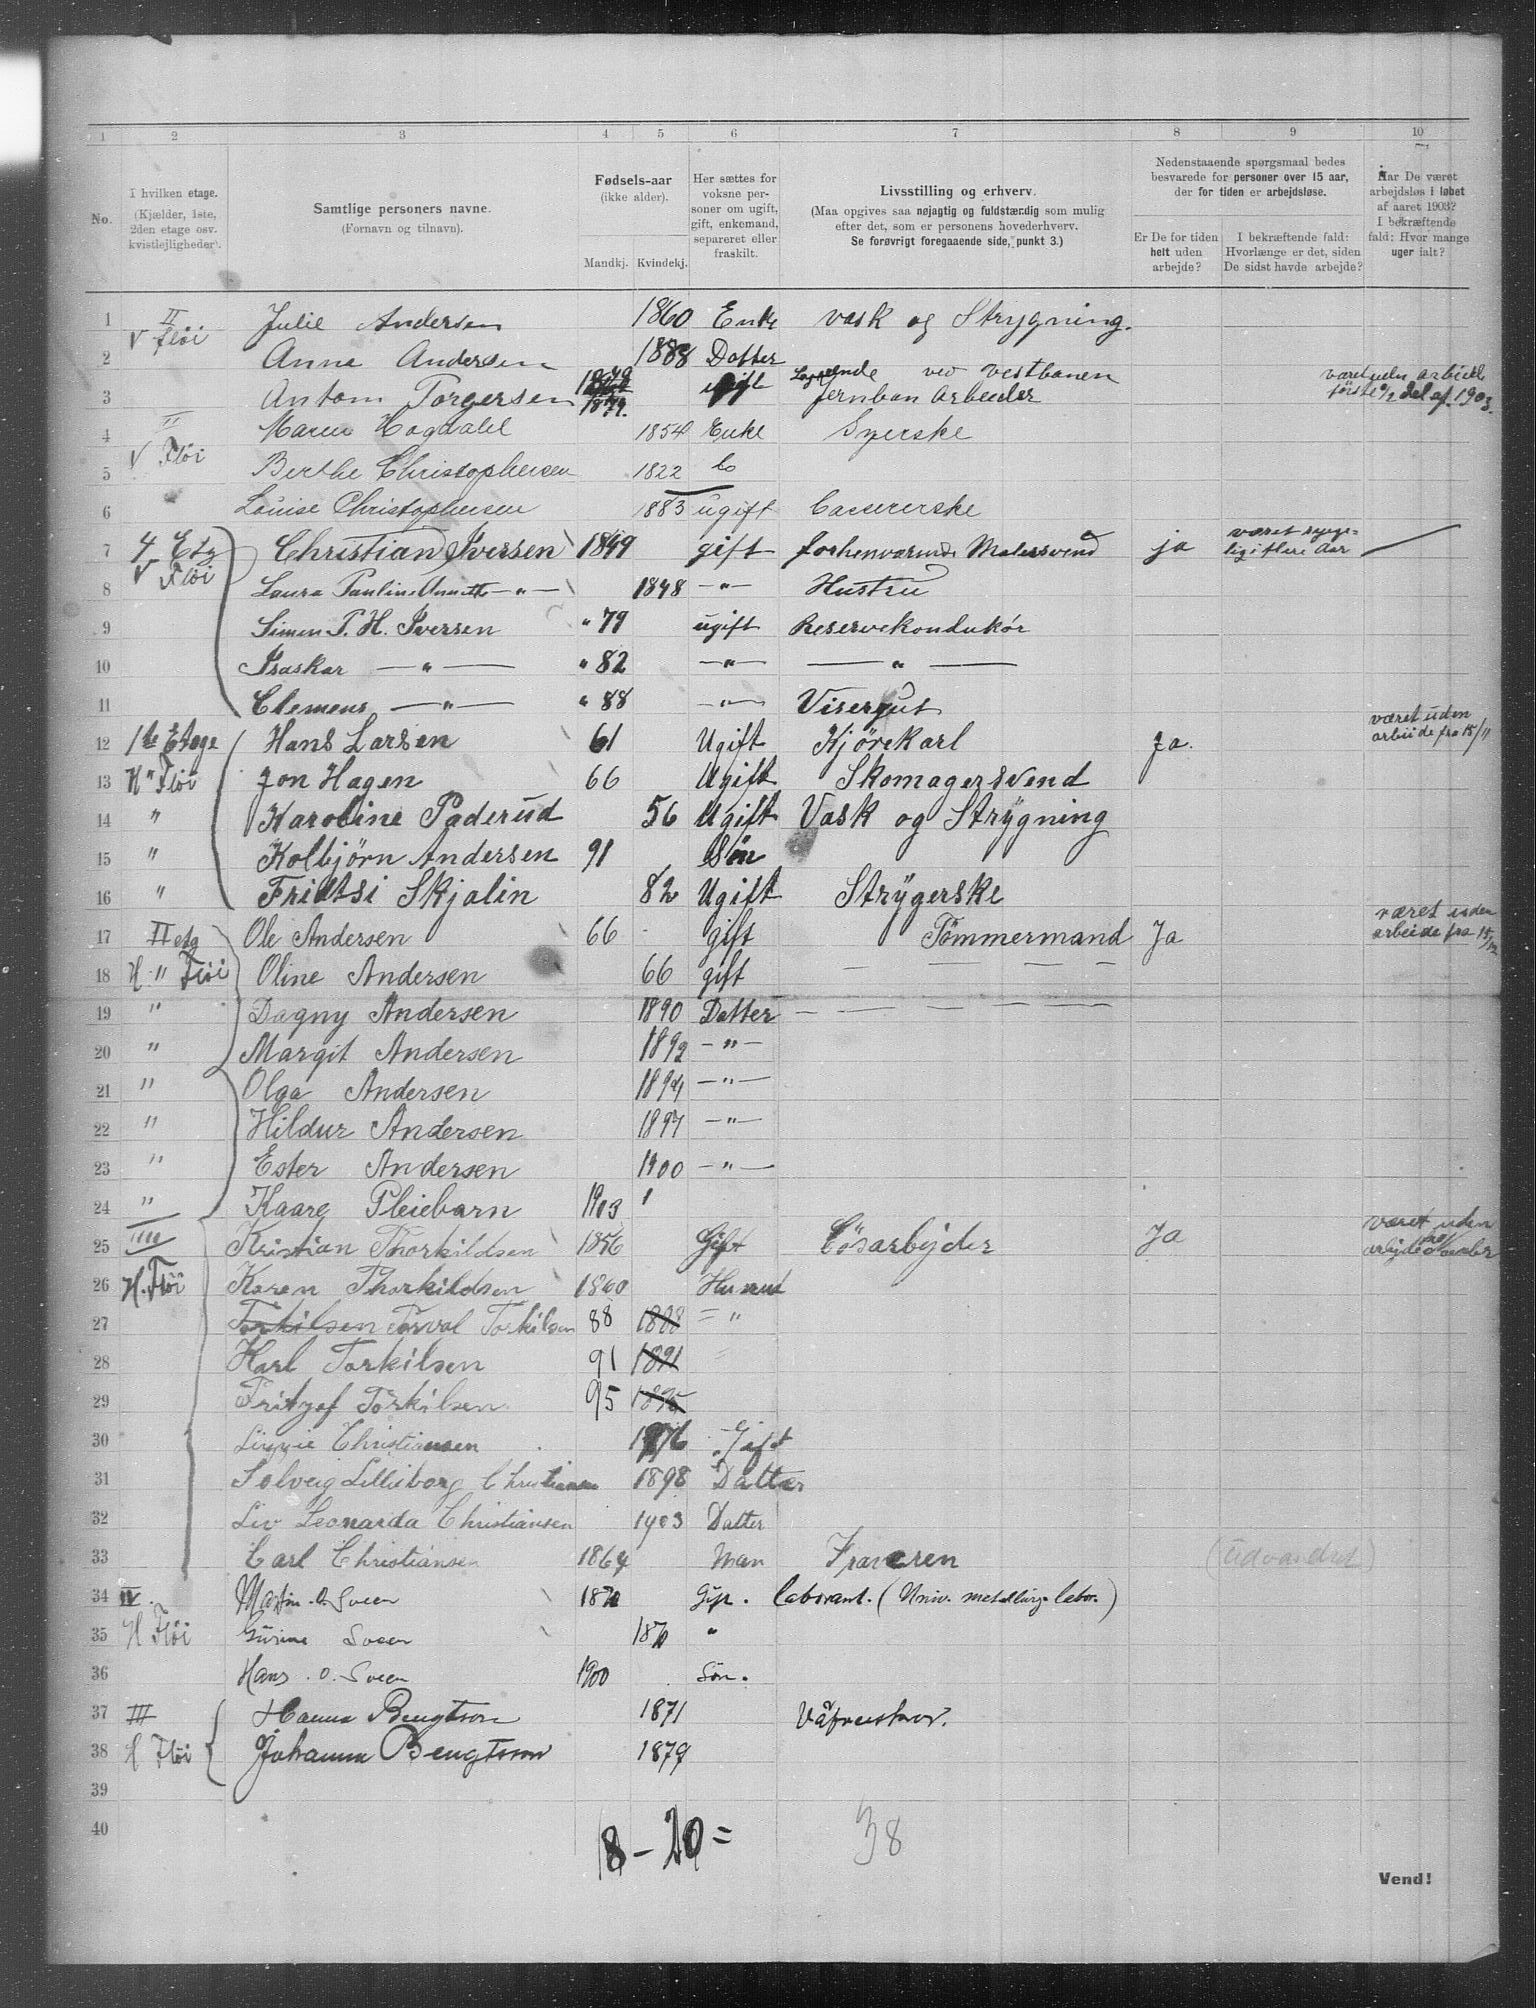 1 2 3 4 5 6 7 8 9 10
No.
I hvilken etage. (Kjælder, 1ste, 2den etage osv. kvistlejligheder).
Samtlige personers navne. (Fornavn og tilnavn).
Fødsels-aar (ikke alder). Mandkj. Kvindekj.
Her sættes for voksne personer om ugift, gift, enkemand, separeret eller fraskilt.
Livsstilling og erhverv. (Maa opgives saa nøjagtig og fuldstændig som mulig efter det, som er personens hovederhverv. Se forøvrigt foregaaende side, punkt 3.)
Nedenstaaende spørgsmaal bedes besvarede for personer over 15 aar, der for tiden er arbejdsløse.
Er De for tiden helt uden arbejde?
I bekræftende fald: Hvorlænge er det, siden De sidst havde arbejde?
Har De været arbejdsløs i løbet af aaret 1903? I bekræftende fald: Hvor mange uger ialt?
1 II V fløi Julie Andersen 1860 Enke vask og Strygning.
2 Anna Andersen 1888 Datter
3 Anton Torgersen 1879. ugift ved Vestbanen jernban Arbeider været uden arbeide første 1/2 del af 1903.
4 II V Fløi Maren Hogdahl 1854 Enke Syerske
5 Berthe Christophersen 1822 do
6 Louise Christophersen 1883 ugift
7 4 Etg V Fløi Christian Iversen 1849 gift forhenværende Malersvend ja været syge-ligi flere Aar —
8 Laura Pauline Annette —"— 1848 —"— Hustru
9 Simen P. H. Iversen " 79 ugift Reservekonduktør
10 Isaskar —"— " 82 —"— —"—
11 Clemens —"— " 88 —"— Visergut
12 1ste Etage Hans Larsen 61 Ugift Kjørekarl Ja. været uden arbeide fra 15/11
13 H " Fløi Jon Hagen 66 Ugift Skomagersvend
14 " Karoline Paderud 56 Ugift Vask og Strygning
15 " Kolbjörn Andersen 91 Sön
16 " Fridtsi Skjolin 82 Ugift Strygerske
17 II etg Ole Andersen 66 gift Tömmermand Ja været uden arbeide fra 15/12
18 H. " Fløi Oline Andersen 66 gift — — — —
19 " Dagny Andersen 1890 Datter — — — —
20 " Margit Andersen 1892 —"—
21 " Olga Andersen 1894 —"—
22 " Hildur Andersen 1897 —"—
23 " Ester Andersen 1900 —"—
24 " Kaare Pleiebarn 1903 1
25 IIII Kristian Thorkildsen 1856 Gift Lösarbejder Ja været uden arbejde
26 H. Fløi Karen Thorkildsen 1860
27 Torkilsen Torval Torkilsen 88 1888 "
28 Karl Torkilsen 91 1891
29 Fritjof Torkilsen 95 1895
30 Christiansen 1876 Gift
31 Solveig Lilleborg Christiansen 1898 Datter
32 Liv Leonarda Christiansen 1903 Datter
33 Carl Christiansen 1864 Man (udvandret)
34 IV. Martin O. Sveen 1870 Gift. Laborant. (Univ. metallurg. labor.)
35 H Fløi Gurine Sveen 1870 "
36 Hans O. Sveen 1900 Sön.
37 III Hanna Bengtson 1871
38 H Fløi Johanna Bengtsson 1879
39
40
18 – 20 = 38
Vend!